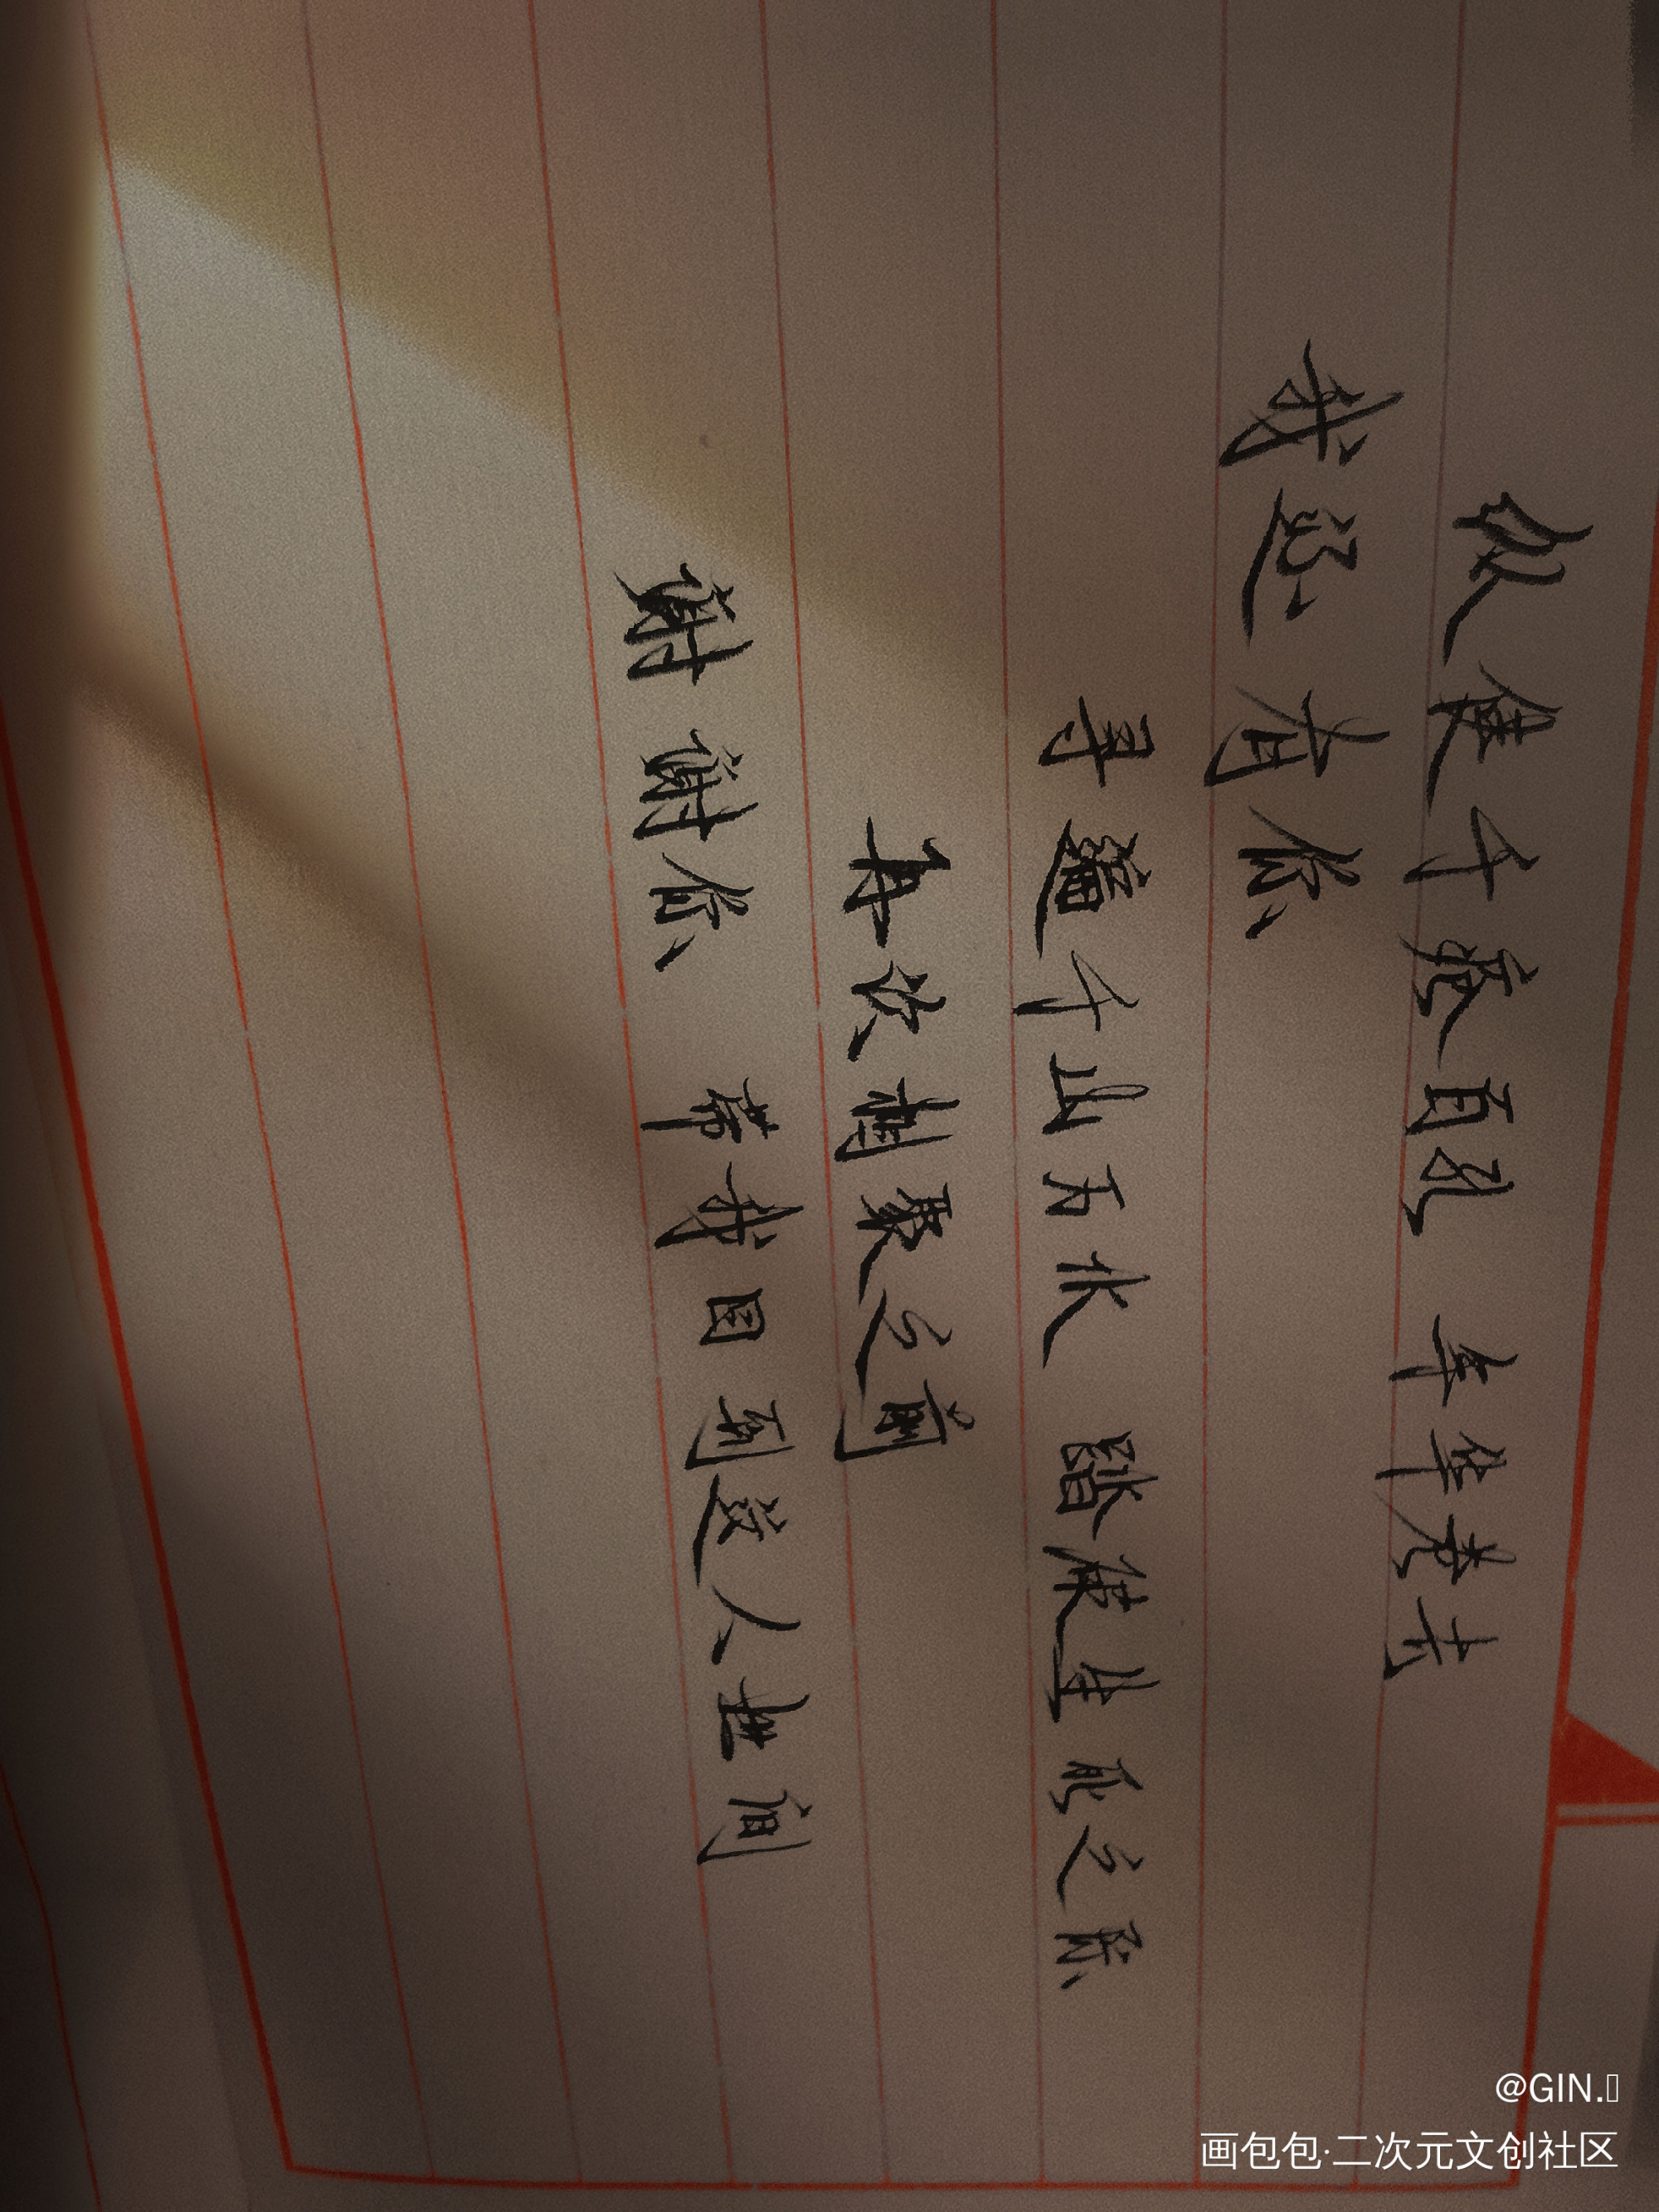 纵使千疮百孔 年华老去
我还有你
寻遍千山万水 踏生死之际
再次相聚之
谢谢你 带我回到这人世间
@GIN.
画包包·二次元文创社区